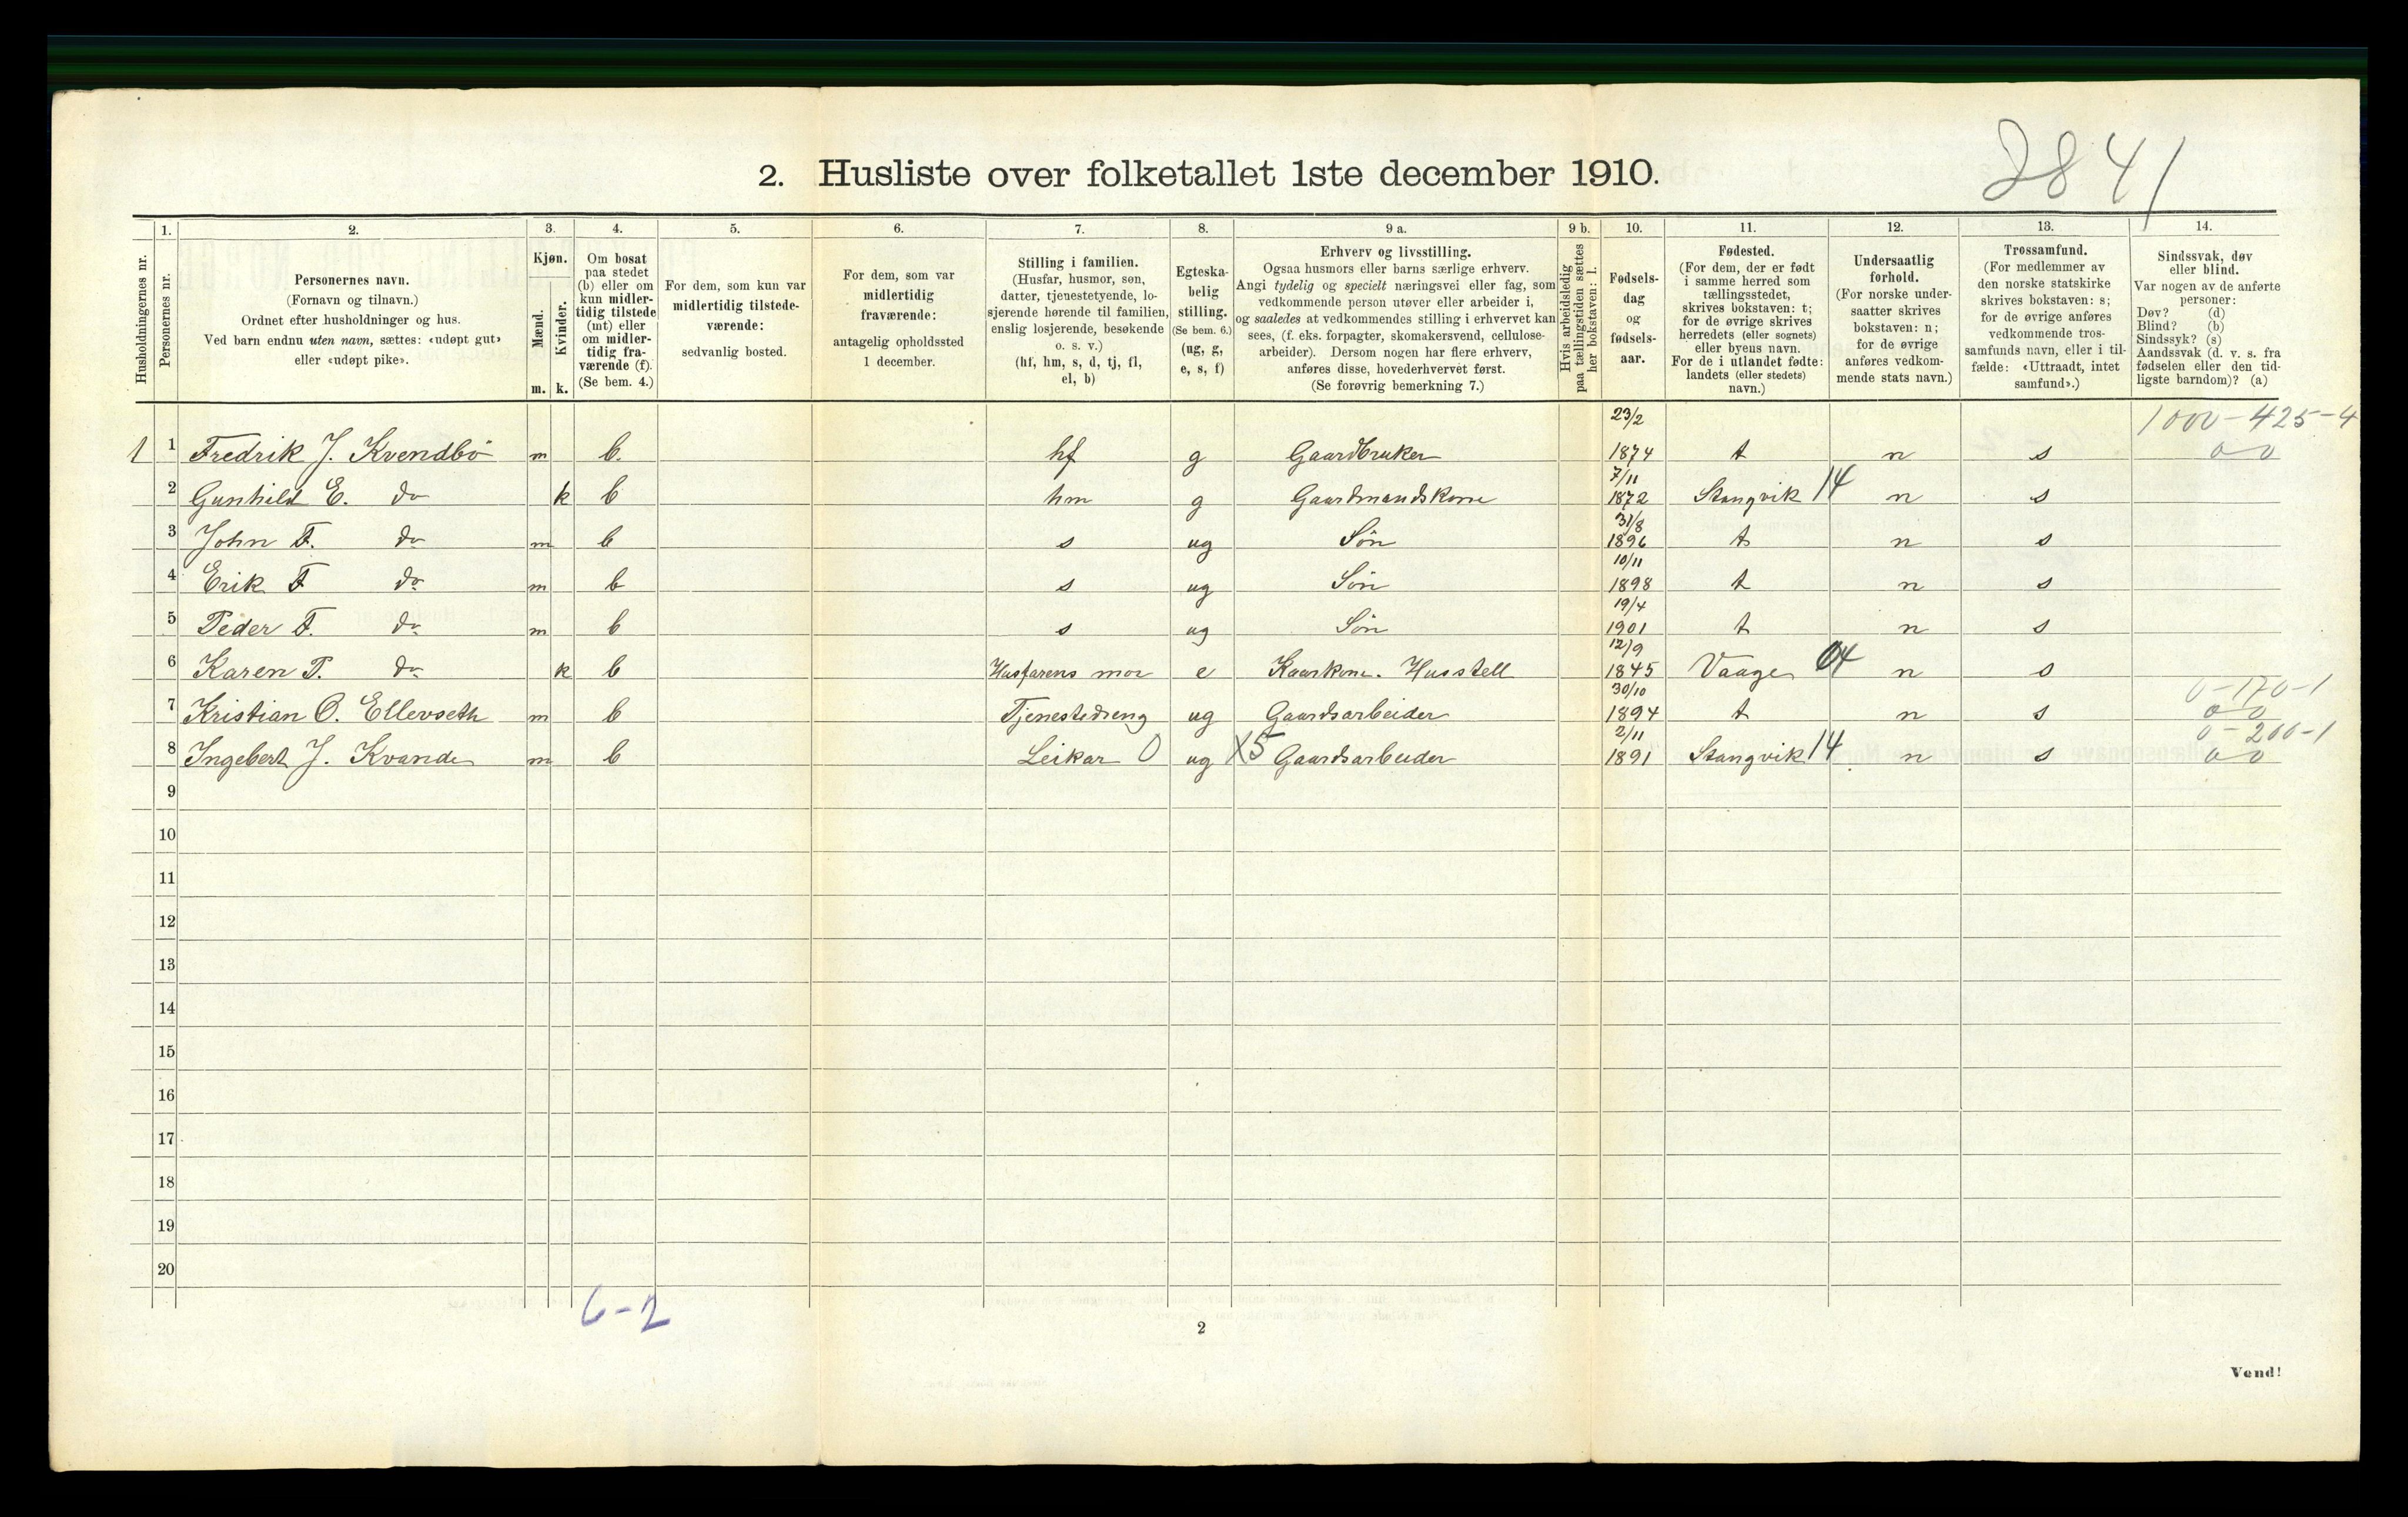 2841
2. Husliste over folketallet 1ste december 1910.
Husholdningernes nr.
1.
Personernes nr.
2.
Personernes navn.
(Fornavn og tilnavn.)
Ordnet efter husholdninger og hus.
Ved barn endnu uten navn, sættes: «udøpt gut»
eller «udøpt pike».
3.
Kjøn.
Mænd.
Kvinder.
m. k.
4.
Om bosat
paa stedet
(b) eller om
kun midler-
tidig tilstede
(mt) eller
om midler-
tidig fra-
værende (f).
(Se bem. 4.)
5.
For dem, som kun var
midlertidig tilstede-
værende:
sedvanlig bosted.
6.
For dem, som var
midlertidig
fraværende:
antagelig opholdssted
1 december.
7.
Stilling i familien.
(Husfar, husmor, søn,
datter, tjenestetyende, lo-
sjerende hørende til familien,
enslig losjerende, besøkende
o. s. v.)
(hf, hm, s, d, tj, fl,
el, b)
8.
Egteska-
belig
stilling.
(Se bem. 6.)
(ug, g,
e, s, f)
9 a.
Erhverv og livsstilling.
Ogsaa husmors eller barns særlige erhverv.
Angi tydelig og specielt næringsvei eller fag, som
vedkommende person utøver eller arbeider i,
og saaledes at vedkommendes stilling i erhvervet kan
sees, (f. eks. forpagter, skomakersvend, cellulose-
arbeider). Dersom nogen har flere erhverv,
anføres disse, hovederhvervet først.
(Se forøvrig bemerkning 7.)
9 b.
Hvis arbeidsledig
paa tællingstiden sættes
her bokstaven: l.
10.
Fødsels-
dag
og
fødsels-
aar.
11.
Fødested.
(For dem, der er født
i samme herred som
tællingsstedet,
skrives bokstaven: t;
for de øvrige skrives
herredets (eller sognets)
eller byens navn.
For de i utlandet fødte:
landets (eller stedets)
navn.)
12.
Undersaatlig
forhold.
(For norske under-
saatter skrives
bokstaven: n;
for de øvrige
anføres vedkom-
mende stats navn.)
13.
Trossamfund.
(For medlemmer av
den norske statskirke
skrives bokstaven: s;
for de øvrige anføres
vedkommende tros-
samfunds navn, eller i til-
fælde: «Uttraadt, intet
samfund».)
14.
Sindssvak, døv
eller blind.
Var nogen av de anførte
personer:
Døv? (d)
Blind? (b)
Sindssyk? (s)
Aandssvak (d. v. s. fra
fødselen eller den tid-
ligste barndom)? (a)
23/2 1000-425-4
1 1 Fredrik J. Kvendbö m b. hf g Gaardbruker 1874 t n s 0 0
7/11
2 Gunhild E. do k b hm g Gaardmandskone 1872 Stangvik 14 n s
31/8
3 John F. do m b s ug Sön 1896 t n s
10/11
4 Erik F do m b s ug Sön 1898 t n s
19/4
5 Peder F. do m b s ug Sön 1901 t n s
12/9
6 Karen P. do k b Husfarens mor e Kaarkone. Husstell 1845 Vaage 04 n s
30/10 0-170-1
7 Kristian O. Ellevseth m b Tjenestedreng ug Gaardsarbeider 1894 t n s 0 0
2/11 0-200-1
8 Ingebert J. Kvande m b Leikar 0 ug X5 Gaardsarbeider 1891 Stangvik 14 n s 0 0
9
10
11
12
13
14
15
16
17
18
19
20
6-2
2
Vend!